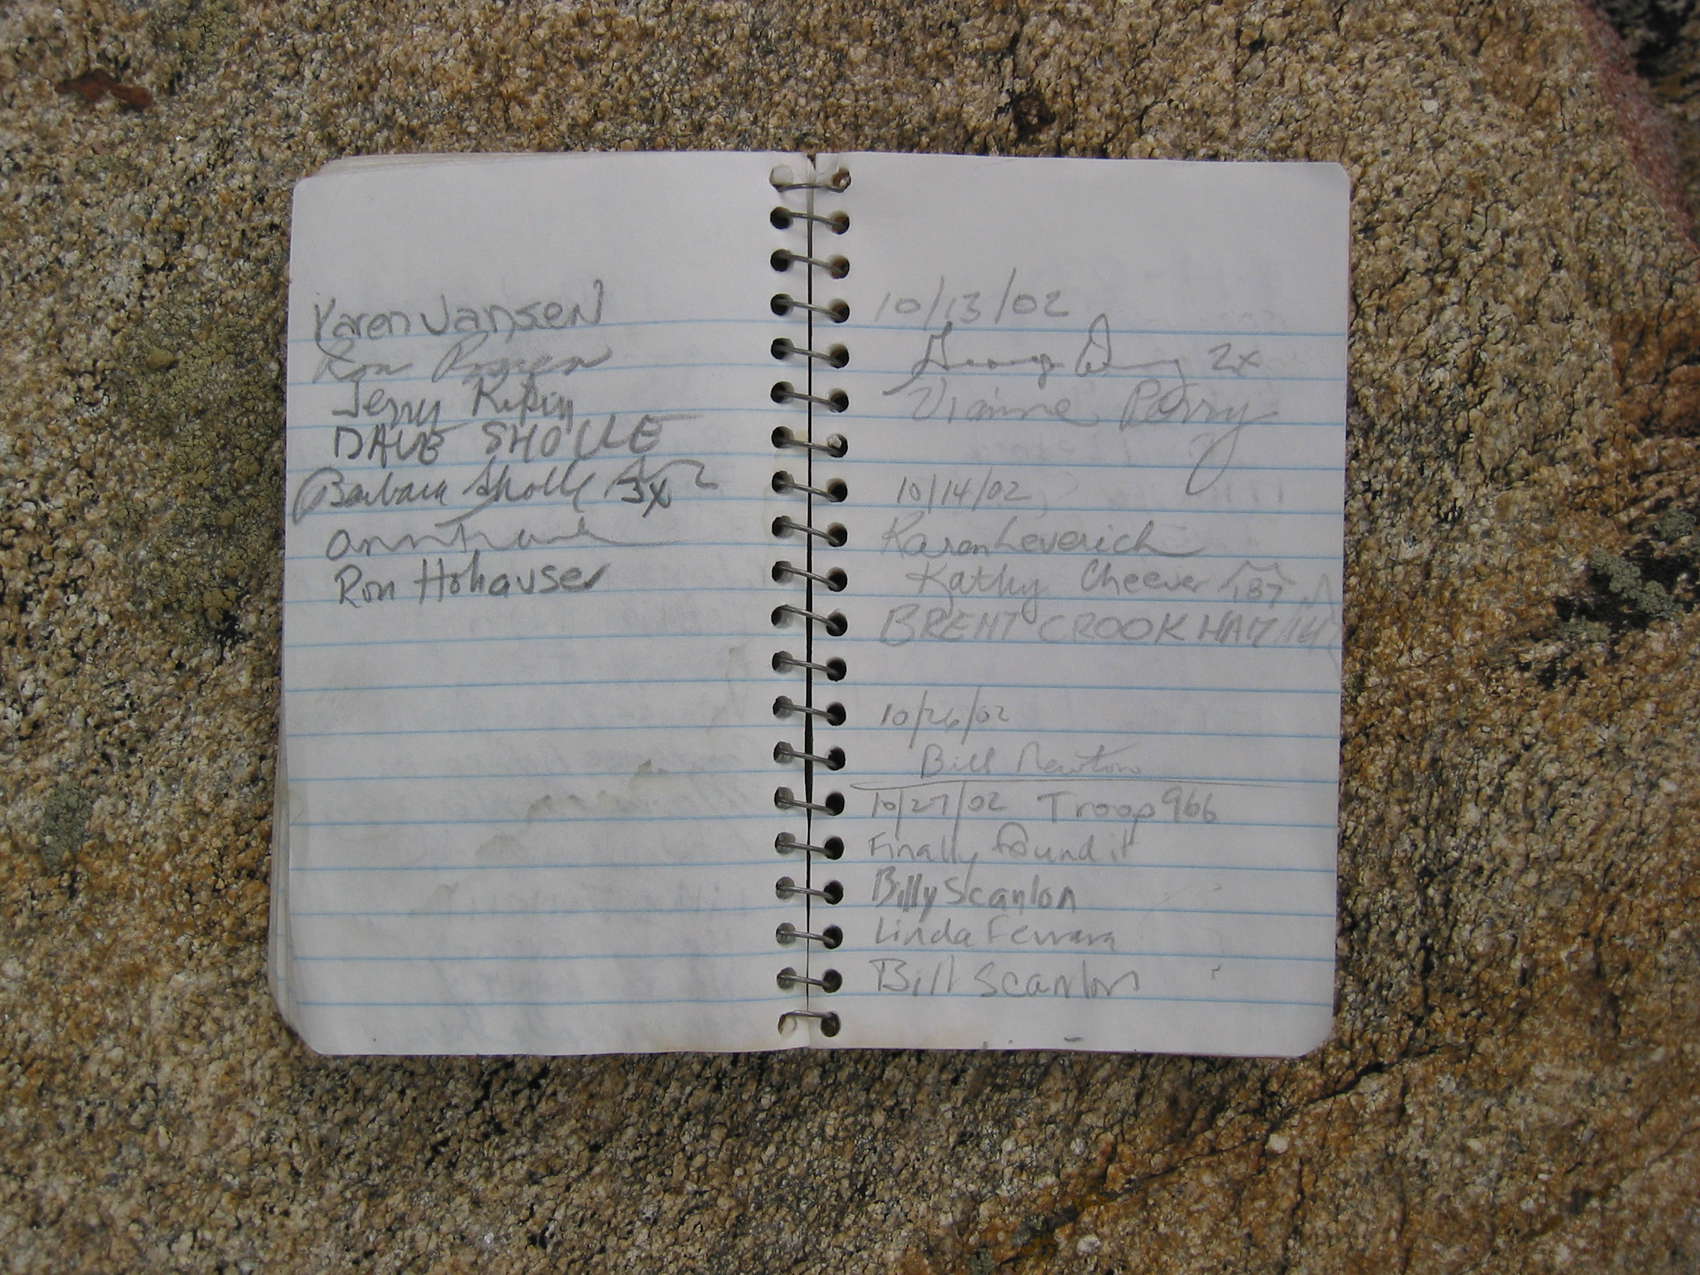 Karen Jansen
Ron
Jerry
DAVE SHOLLE
Barbara Sholle 3x
Ron Hohauser
10/13/02
2x
Vianne Parry
10/14/02
Karen Leverich
Kathy Cheever 187
BRENT CROOKHAM
10/26/02
Bill Newton
10/27/02 Troop 966
Finally found it
Billy Scanlon
Linda Ferrara
Bill Scanlon